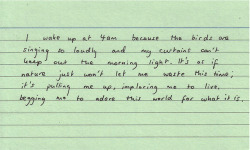 I wake up at 4am because the birds are
singing so loudly and my curtains can't
keep out the morning light. It's as if
nature just won't let me waste this time;
it's pulling me up, imploring me to live,
begging me to adore this world for what it is.